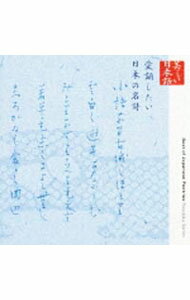 美しい
日本語
愛誦したい
日本の名詩
小諸なる古城のほとり
雲白く遊子悲しむ
緑なすはこべは萌えず
若草も藉くによしなし
しろがねの衾の岡辺